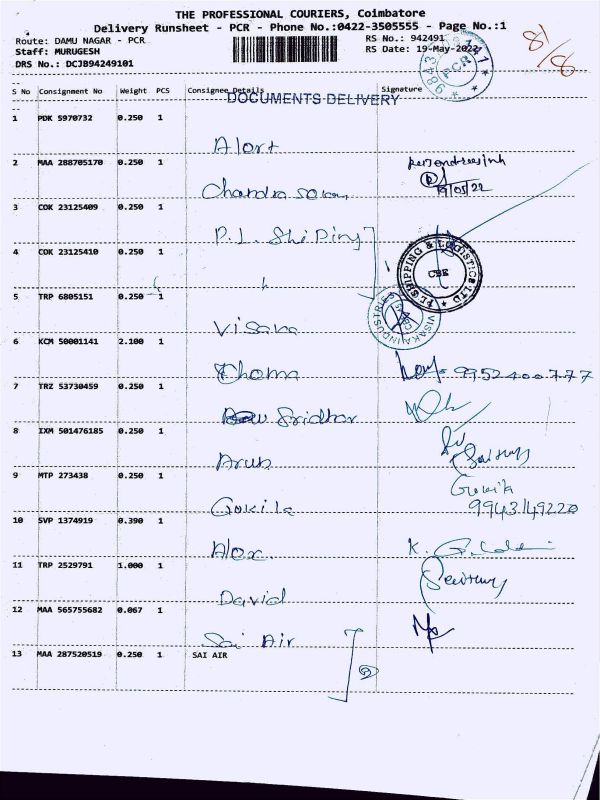 THE PROFESSIONAL COURIERS, Coimbatore
Delivery Runsheet - PCR - Phone No.:0422-3505555 - Page No.:1
Route: DAMU NAGAR - PCR
RS No.: 942491
Staff: MURUGESH
RS Date: 19-May-2022
DRS No.: DCJB94249101
8/8
PCR
S No Consignment No Weight PCS Consignee Details Signature
DOCUMENTS DELIVERY
1 PDK 5970732 0.250 1
Alort
2 MAA 288705170 0.250 1
19/05/22
3 COK 23125409 0.250 1
P.L. Shiping
4 COK 23125410 0.250 1
PL SHIPPING & LOGISTICS LTD
CBE
5 TRP 6805151 0.250 1
Visaka
VISAKA INDUSTRIES
6 KCM 50001141 2.100 1
Thoma
9952400777
7 TRZ 53730459 0.250 1
Sridhar
8 IXM 501476185 0.250 1
Arun
9 MTP 273438 0.250 1
Gokila
9943149220
10 SVP 1374919 0.390 1
Alox.
11 TRP 2529791 1.000 1
David
12 MAA 565755682 0.067 1
Sai Air
13 MAA 287520519 0.250 1 SAI AIR